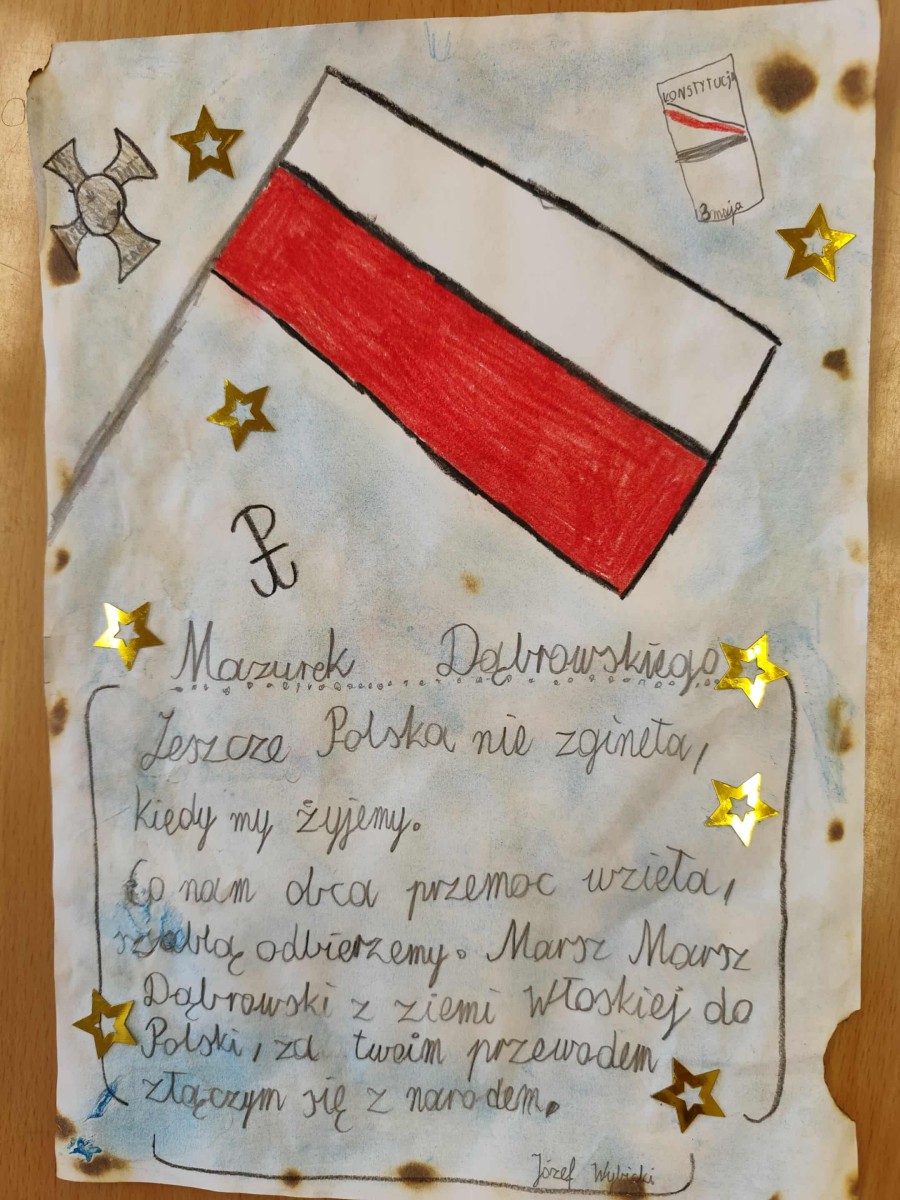 KONSTYTUCJA
3 maja
Mazurek Dąbrowskiego
Jeszcze Polska nie zgineła,
kiedy my żyjemy.
Co nam obca przemoc wzieła,
szablą odbierzemy. Marsz Marsz
Dąbrowski z ziemi Włoskiej do
Polski, za twoim przewodem
złączym się z narodem.
Józef Wybicki